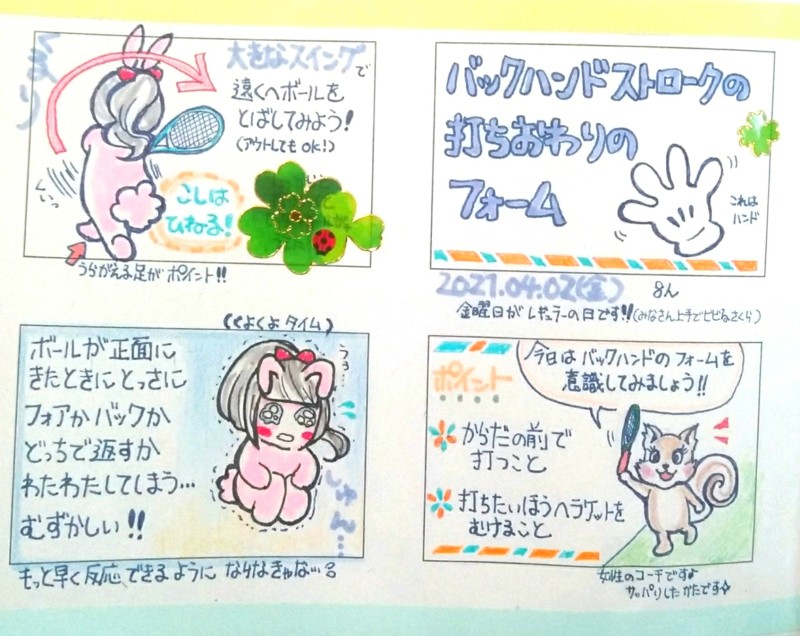 バックハンドストロークの
打ちおわりの
フォーム
これは
ハンド
2021.04.02(金)
金曜日がレギュラーの日です!!(みなさん上手でビビなさくら)
今日はバックハンドのフォームを
意識してみましょう!!
ポイント
からだの前で
打つこと
打ちたいほうへラケットを
むけること
女性のコーチです♪
サッパリしたかたです
くるり
大きなスイングで
遠くへボールを
とばしてみよう!
(アウトしてもOK!)
こしは
ひねる!
くいっ
うらがえる足がポイント!!
(くよくよタイム)
ボールが正面に
きたときにとっさに
フォアかバックか
どっちで返すか
わたわたしてしまう…
むずかしい!!
うっ…
しゅん…
もっと早く反応できるようにならなきゃな…